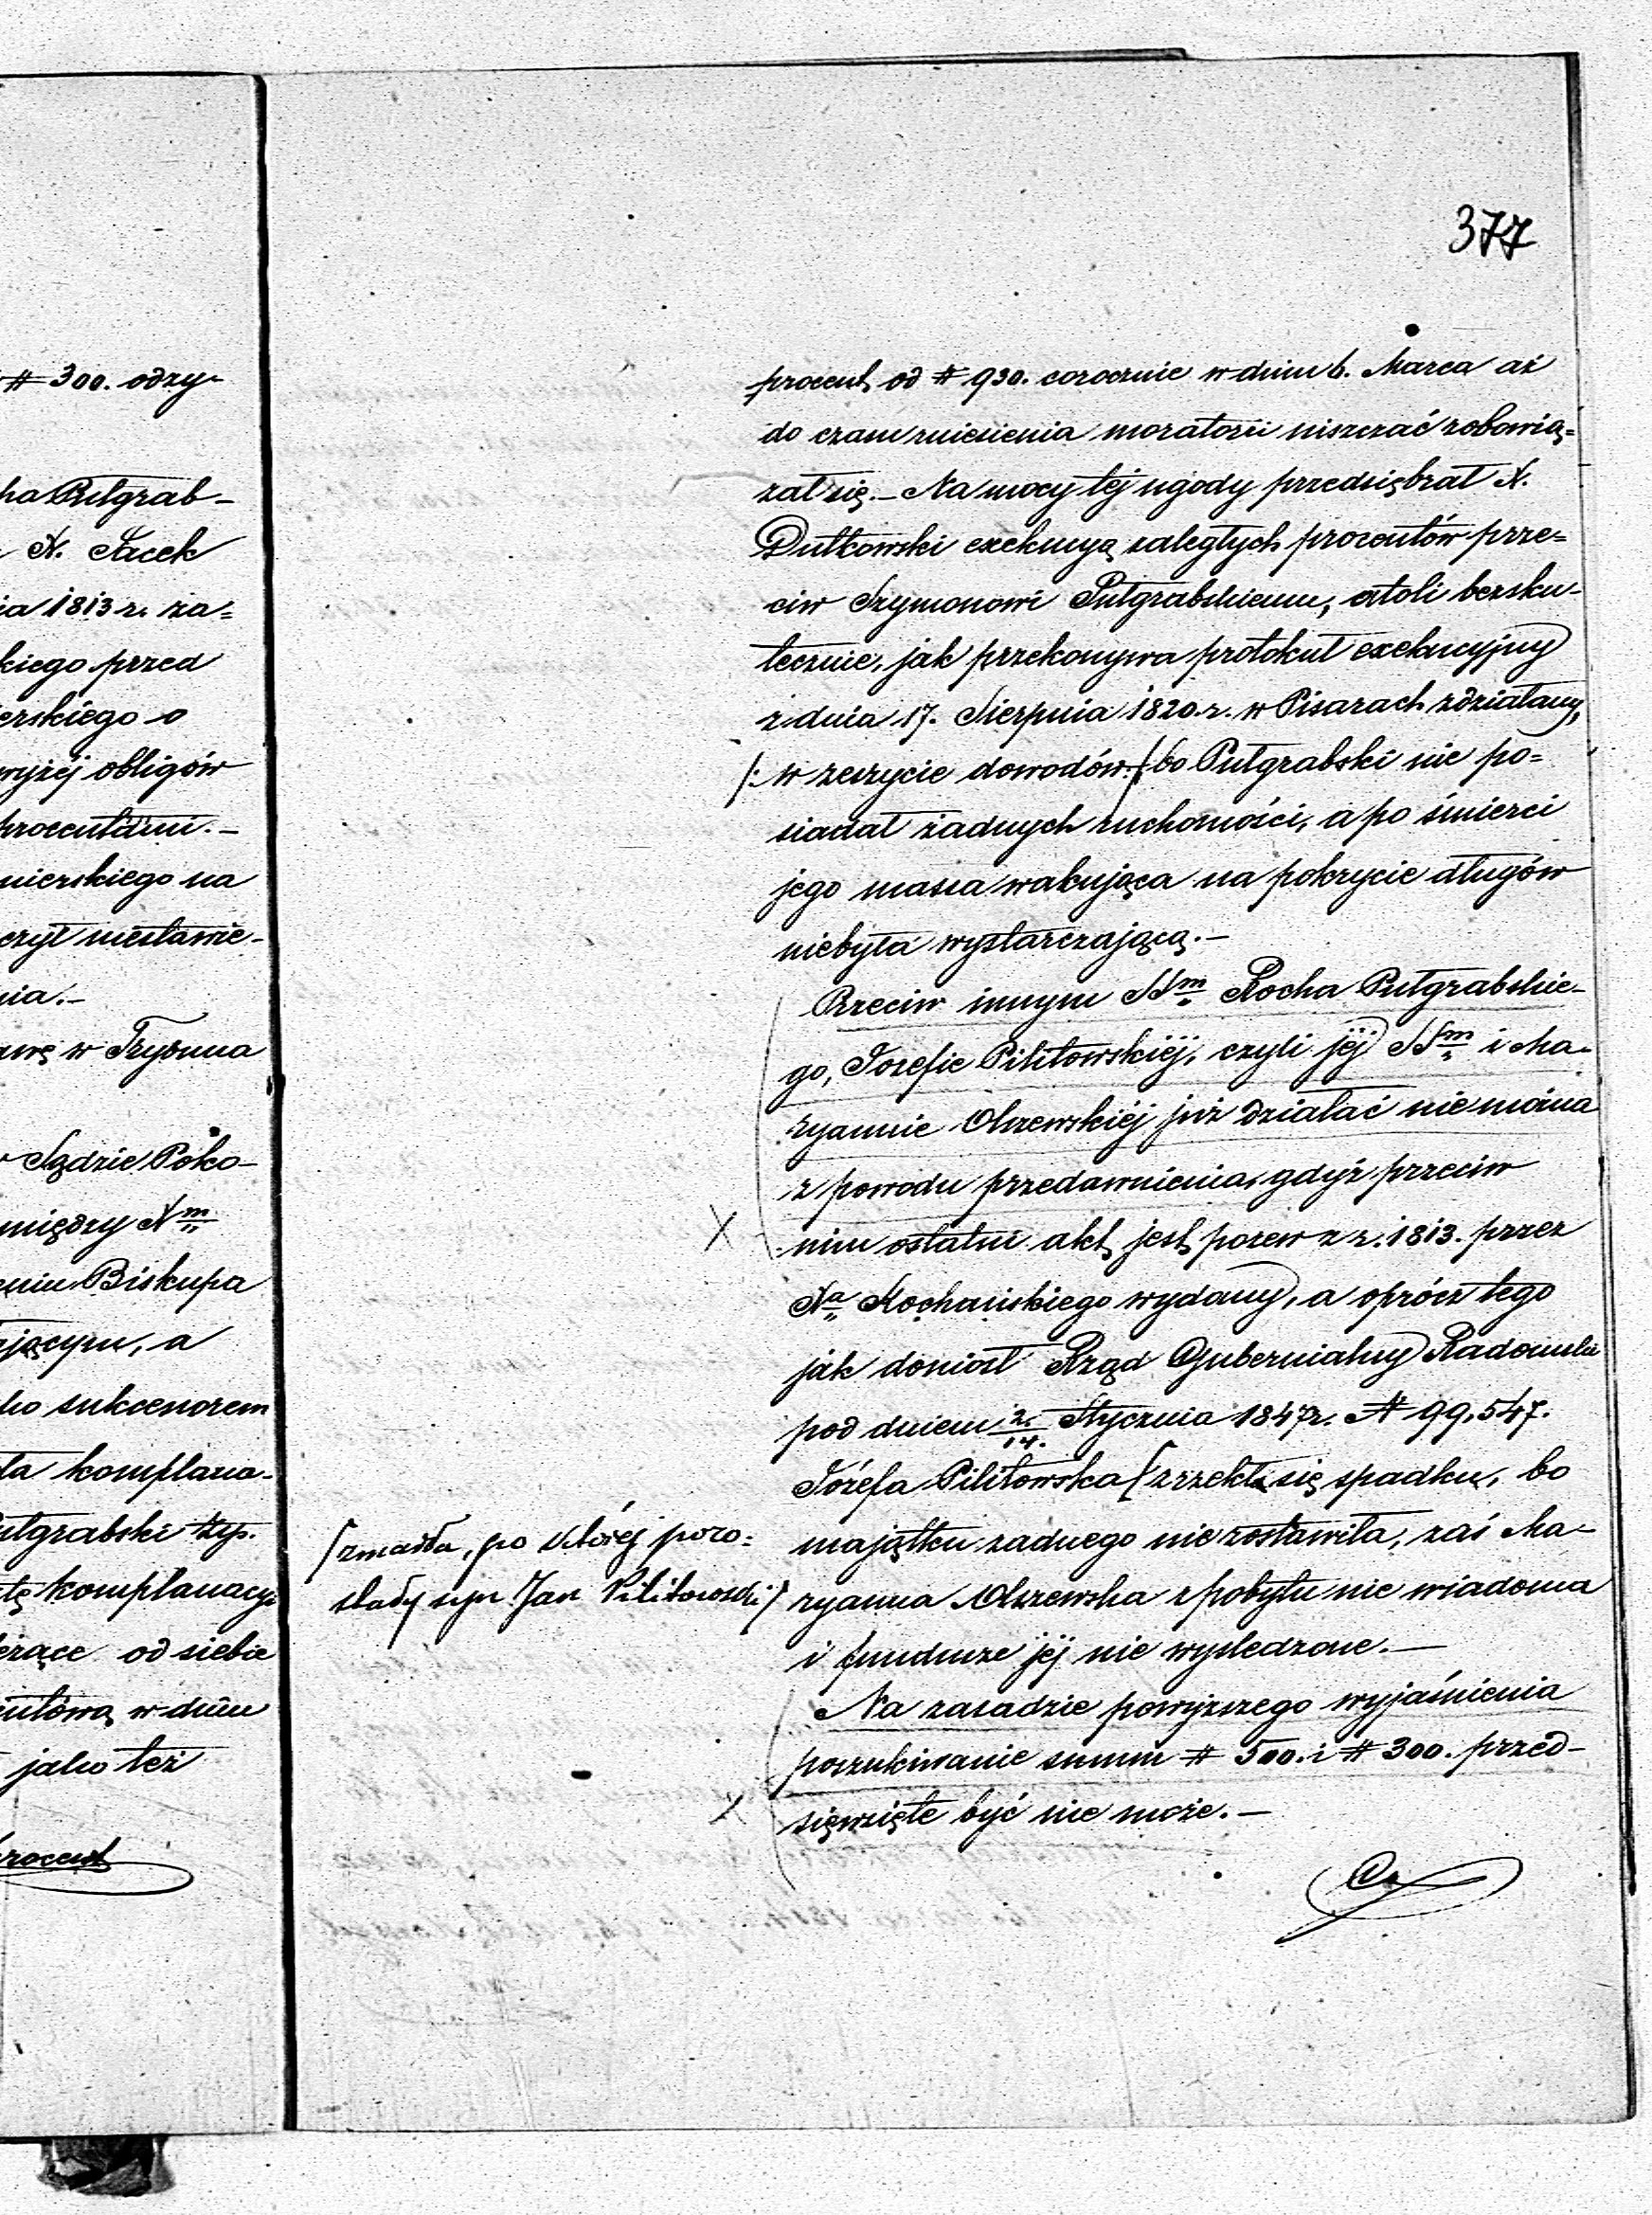 # 300. odzy-
ha Putgrab-
X. Jacek
ia 1813 r. za=
kiego przed
erskiego o
wyżéj obligów
procentami.-
mierskiego na
czył niestawie-
nia.-
awę w Trybuna
Sądzie Poko-
między Xm
Biskupa
jącym, a
ko sukcessorem
ta komplana-
utgrabski
tę komplanacyę
eżące od siebie
w dniu
jako też
procent
377
procent od # 930. corocznie w dniu 6. Marca aż
do czasu zniesienia moratorii uiszczać zobowią=
zał się.- Na mocy téj ugody przedsiębrał X.
Dutkowski exekucyą zaległych procentów prze=
ciw Szymonowi Putgrabskiemu, atoli bezsku-
tecznie, jak przekonywa protokuł exekucyjny
z dnia 17. Sierpnia 1820. r. w Pisarach zdziałany,
/: w zeszycie dowodów :/ bo Putgrabski nie po=
siadał żadnych ruchomości, a po śmierci
jego massa wakująca na pokrycie długów
niebyła wystarczającą.-
Przeciw innym SSm Rocha Putgrabskie-
go, Jozefie Pilitowskiéj, czyli jéj SSm i Ma-
ryannie Olszewskiéj już działać nie można
z powodu przedawnienia, gdyż przeciw
nim ostatni akt jest pozew z r. 1813. przez
Xa Kochańskiego wydany, a oprócz tego
jak doniósł Rząd Gubernialny Radomski
pod dniem 2/14. Stycznia 1847 r. N 99,547.
Józefa Pilitowska [ zrzekła się spadku, bo
majątku żadnego nie zostawiła, zaś Ma-
[ zmarła, po któréj pozo=
stały syn Jan Pilitowski ]
ryanna Olszewska z pobytu nie wiadoma
i fundusze jéj nie wyśledzone.-
Na zasadzie powyższego wyjaśnienia
poszukiwanie summ # 500. i # 300. przed-
sięwzięte być nie może.-